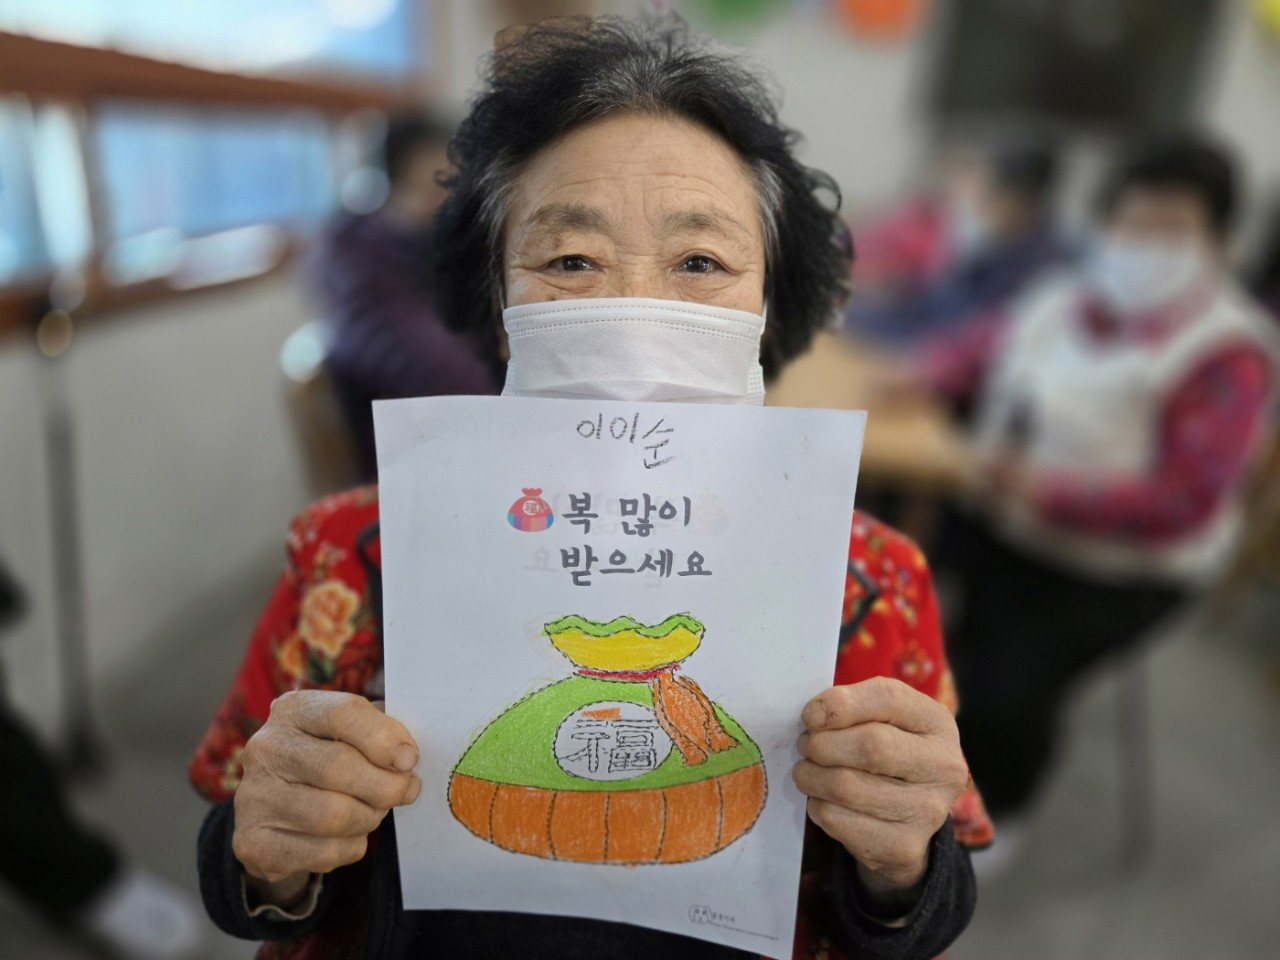 이이순
福
복 많이
받으세요
福